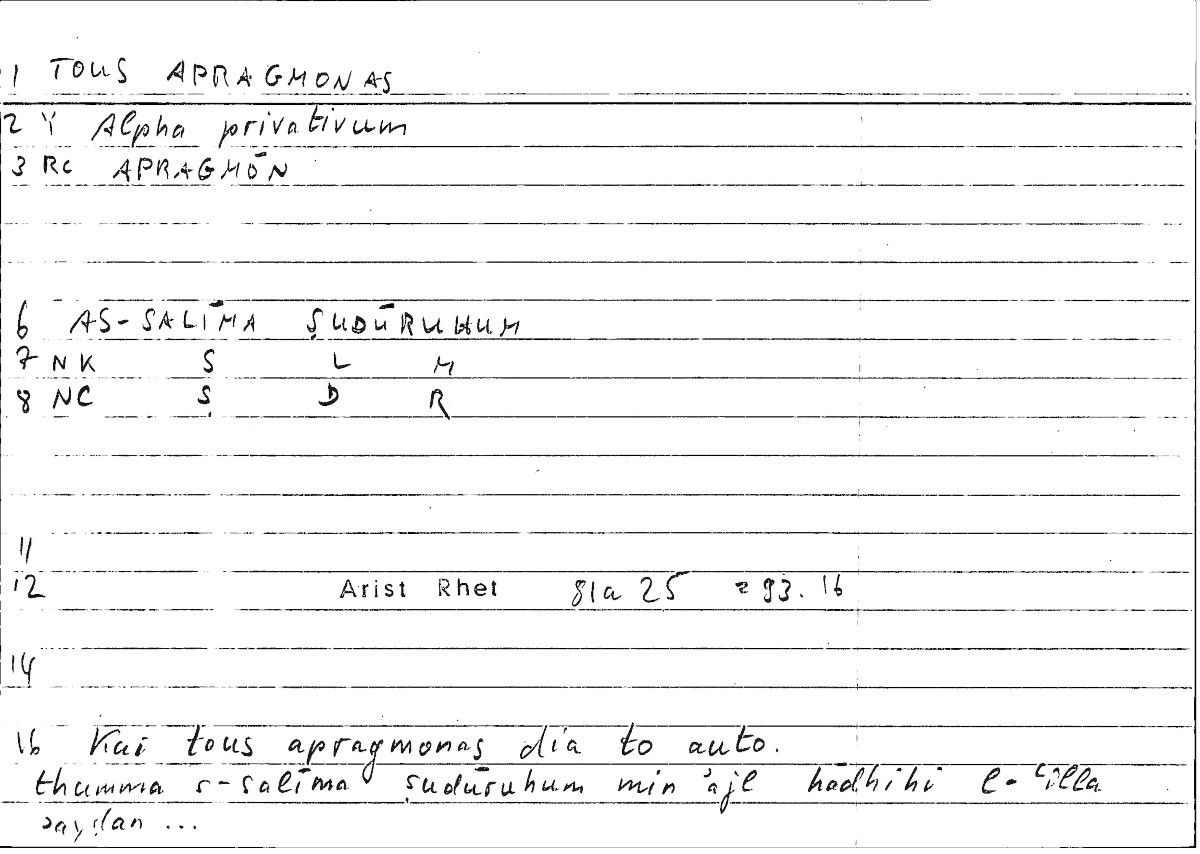 1 TOUS APRAGMONAS
2 Y Alpha privativum
3 Rc APRAGMŌN
6 AS-SALĪMA ṢUDŪRUHUM
7 NK S L M
8 NC Ṣ D R
11
12 Arist Rhet 81a 25 = 93.16
14
16 Kai tous apragmonas dia to auto.
thumma s-salīma ṣudūruhum min ʾajl hādhihi l-ʿilla
ʾayḍan ...